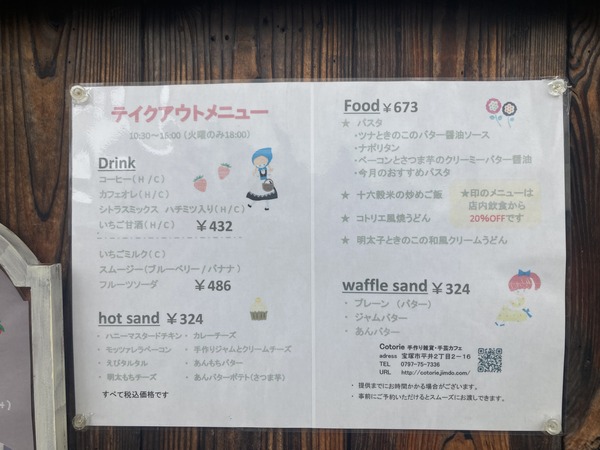 テイクアウトメニュー
10:30~18:00 (火曜のみ18:00)
Drink
コーヒー(H/C)
カフェオレ(H/C)
シトラスミックス ハチミツ入り(H/C)
いちご甘酒(H/C) ¥432
いちごミルク(C)
スムージー(ブルーベリー/バナナ)
フルーツソーダ ¥486
hot sand ¥324
・ハニーマスタードチキン ・カレーチーズ
・モッツァレラベーコン ・手作りジャムとクリームチーズ
・えびタルタル ・あんもちバター
・明太もちチーズ ・あんバターポテト(さつま芋)
すべて税込価格です
Food ¥673
★ パスタ
・ツナときのこのバター醤油ソース
・ナポリタン
・ベーコンとさつま芋のクリーミーバター醤油
・今月のおすすめパスタ
★ 十六穀米の炒めご飯
★ コトリエ風焼うどん
★ 明太子ときのこの和風クリームうどん
★印のメニューは
店内飲食から
20%OFFです
waffle sand ¥324
・ プレーン (バター)
・ ジャムバター
・ あんバター
Cotorie 手作り雑貨・手芸カフェ
adress 宝塚市平井2丁目2-16
TEL 0797-75-7336
URL http://cotorie.jimdo.com/
・ 提供までにお時間かかる場合がございます。
・ 事前にご予約いただけるとスムーズにお渡しできます。